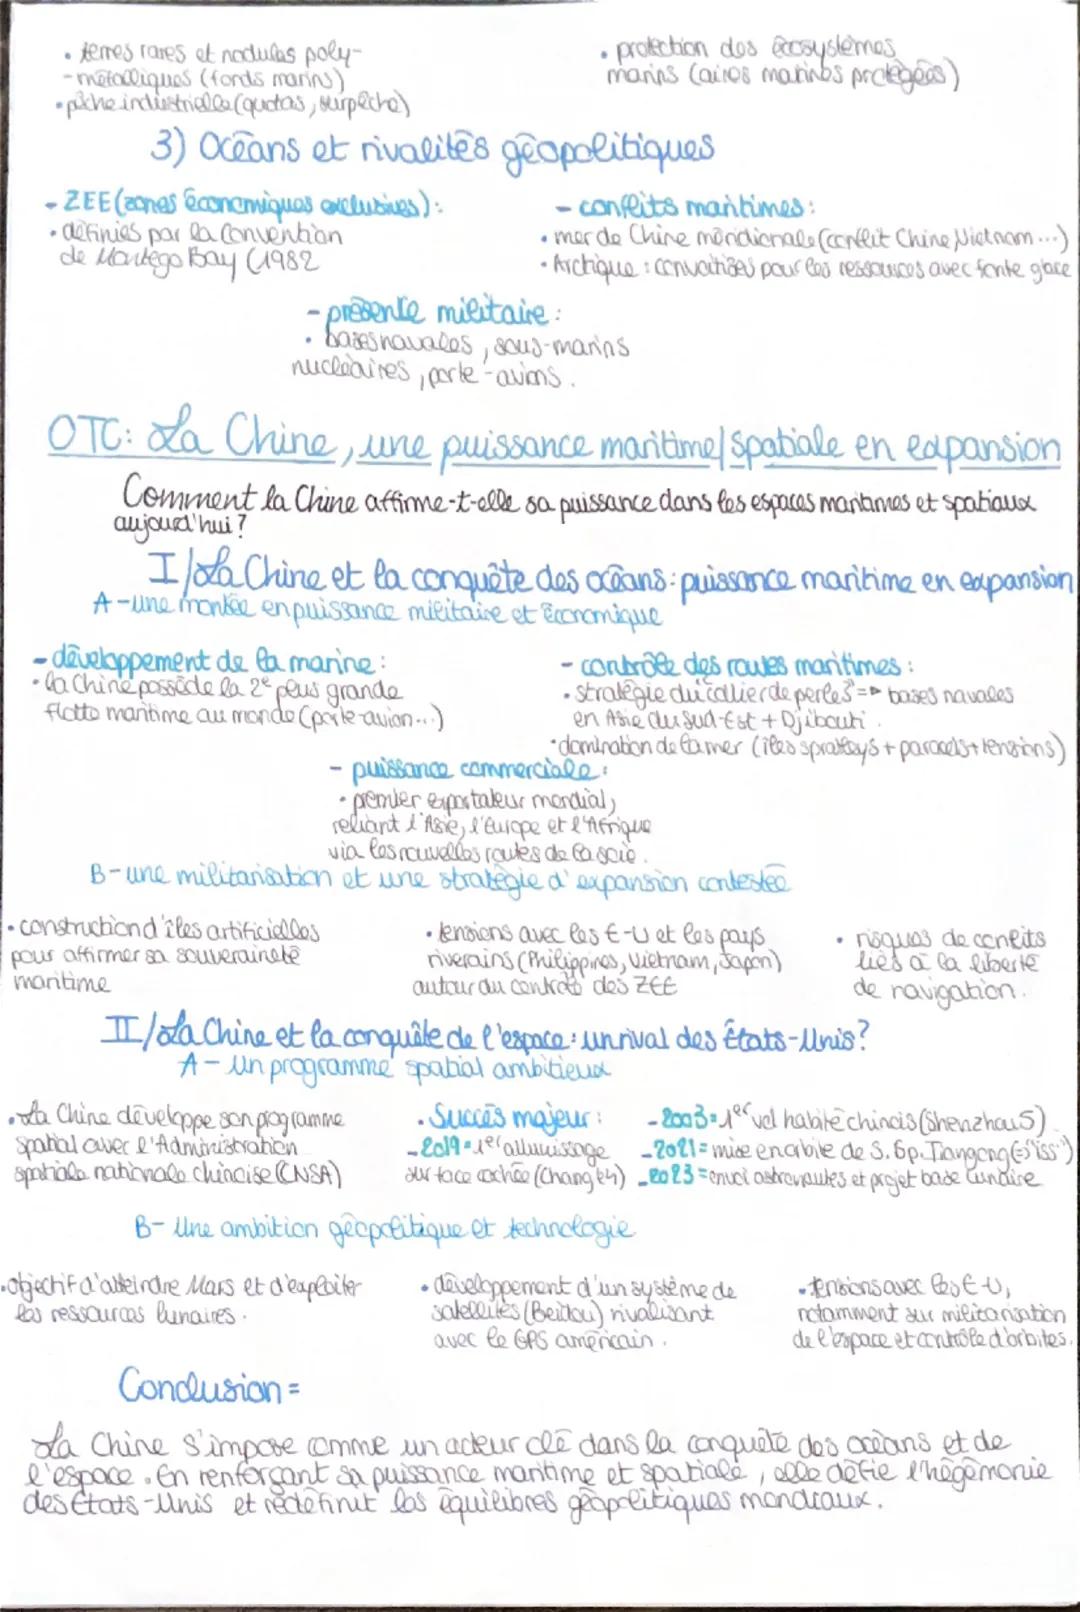 • terres rares et nodules poly-
-métalliques (fonds marins)
• pêche industrielle (quotas, surpêche)
• protection des écosystèmes
marins (aires marines protégées)
3) Océans et rivalités géopolitiques
- ZEE (zones économiques exclusives):
• définies par la Convention
de Montego Bay (1982
- conflits maritimes:
• mer de Chine méridionale (conflit Chine, Vietnam...)
• Archique: convoitises pour les ressources avec fonte glace
- présence militaire:
• bases navales, sous-marins
nucléaires, porte-avions.
OTC: La Chine, une puissance maritime/spatiale en expansion
Comment la Chine affirme-t-elle sa puissance dans les espaces maritimes et spatiaux
aujourd'hui?
I/ La Chine et la conquête des océans: puissance maritime en expansion
A - une montée en puissance militaire et économique
- développement de la marine:
• la Chine possède la 2e plus grande
flotte maritime au monde (porte-avion...)
- contrôle des routes maritimes:
• stratégie du "collier de perles" => bases navales
en Asie du Sud-Est + Djibouti.
• domination de la mer (îles spratleys + paracels + tensions)
- puissance commerciale:
• premier exportateur mondial,
reliant l'Asie, l'Europe et l'Afrique
via les nouvelles routes de la soie.
B - une militarisation et une stratégie d'expansion contestée
• construction d'îles artificielles
pour affirmer sa souveraineté
maritime
• tensions avec les E-U et les pays
riverains (Philippines, Vietnam, Japon)
autour du contrôle des ZEE
• risques de conflits
liés à la liberté
de navigation.
II/ La Chine et la conquête de l'espace: un rival des États-Unis?
A - Un programme spatial ambitieux
• La Chine développe son programme
spatial avec l'Administration
spatiale nationale chinoise (CNSA)
• Succès majeur:
- 2019 = 1er allunissage
sur face cachée (Chang'e4)
- 2003 = 1er vol habité chinois (Shenzhou 5)
- 2021 = mise en orbite de S. Sp. Tiangong (='iss')
- 2023 = envoi astronautes et projet base lunaire
B - Une ambition géopolitique et technologie
• objectif d'atteindre Mars et d'exploiter
les ressources lunaires.
• développement d'un système de
satellites (Beidou) rivalisant
avec le GPS américain.
• tensions avec les E-U,
notamment sur militarisation
de l'espace et contrôle d'orbites.
Conclusion =
La Chine s'impose comme un acteur clé dans la conquête des océans et de
l'espace. En renforçant sa puissance maritime et spatiale, elle défie l'hégémonie
des États-Unis et redéfinit les équilibres géopolitiques mondiaux.